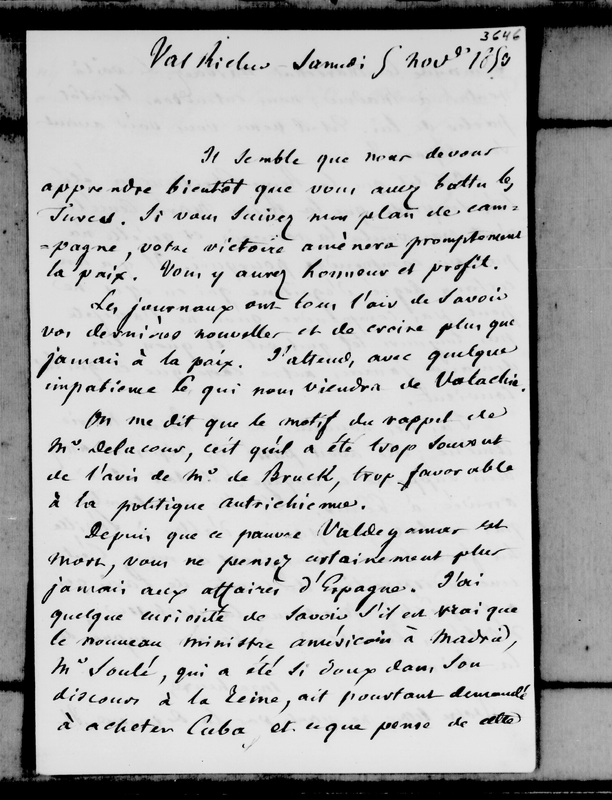 3646
Val Richer Samedi 5 nov.bre 1853
Il semble que nous devons
apprendre bientôt que vous avez battu les
Turcs. Si vous suivez mon plan de cam=
=pagne, votre victoire amènera promptement
la paix. Vous y aurez honneur et profit.
Les journaux ont tous l'air de savoir
vos dernières nouvelles et de croire plus que
jamais à la paix. J'attends, avec quelque
impatience ce qui nous viendra de Valachie.
On me dit que le motif du rappel de
Mr. Delacour, c'est qu'il a été trop souvent
de l'avis de Mr. de Bruck, trop favorable
à la politique autrichienne.
Depuis que ce pauvre Valdegamas est
mort, vous ne pensez certainement plus
jamais aux affaires d'Espagne. J'ai
quelque curiosité de savoir s'il est vrai que
le nouveau ministre américain à Madrid,
Mr. Soulé, qui a été si doux dans son
discours à la Reine, ait pourtant demandé
à acheter Cuba et ce que pense de cette